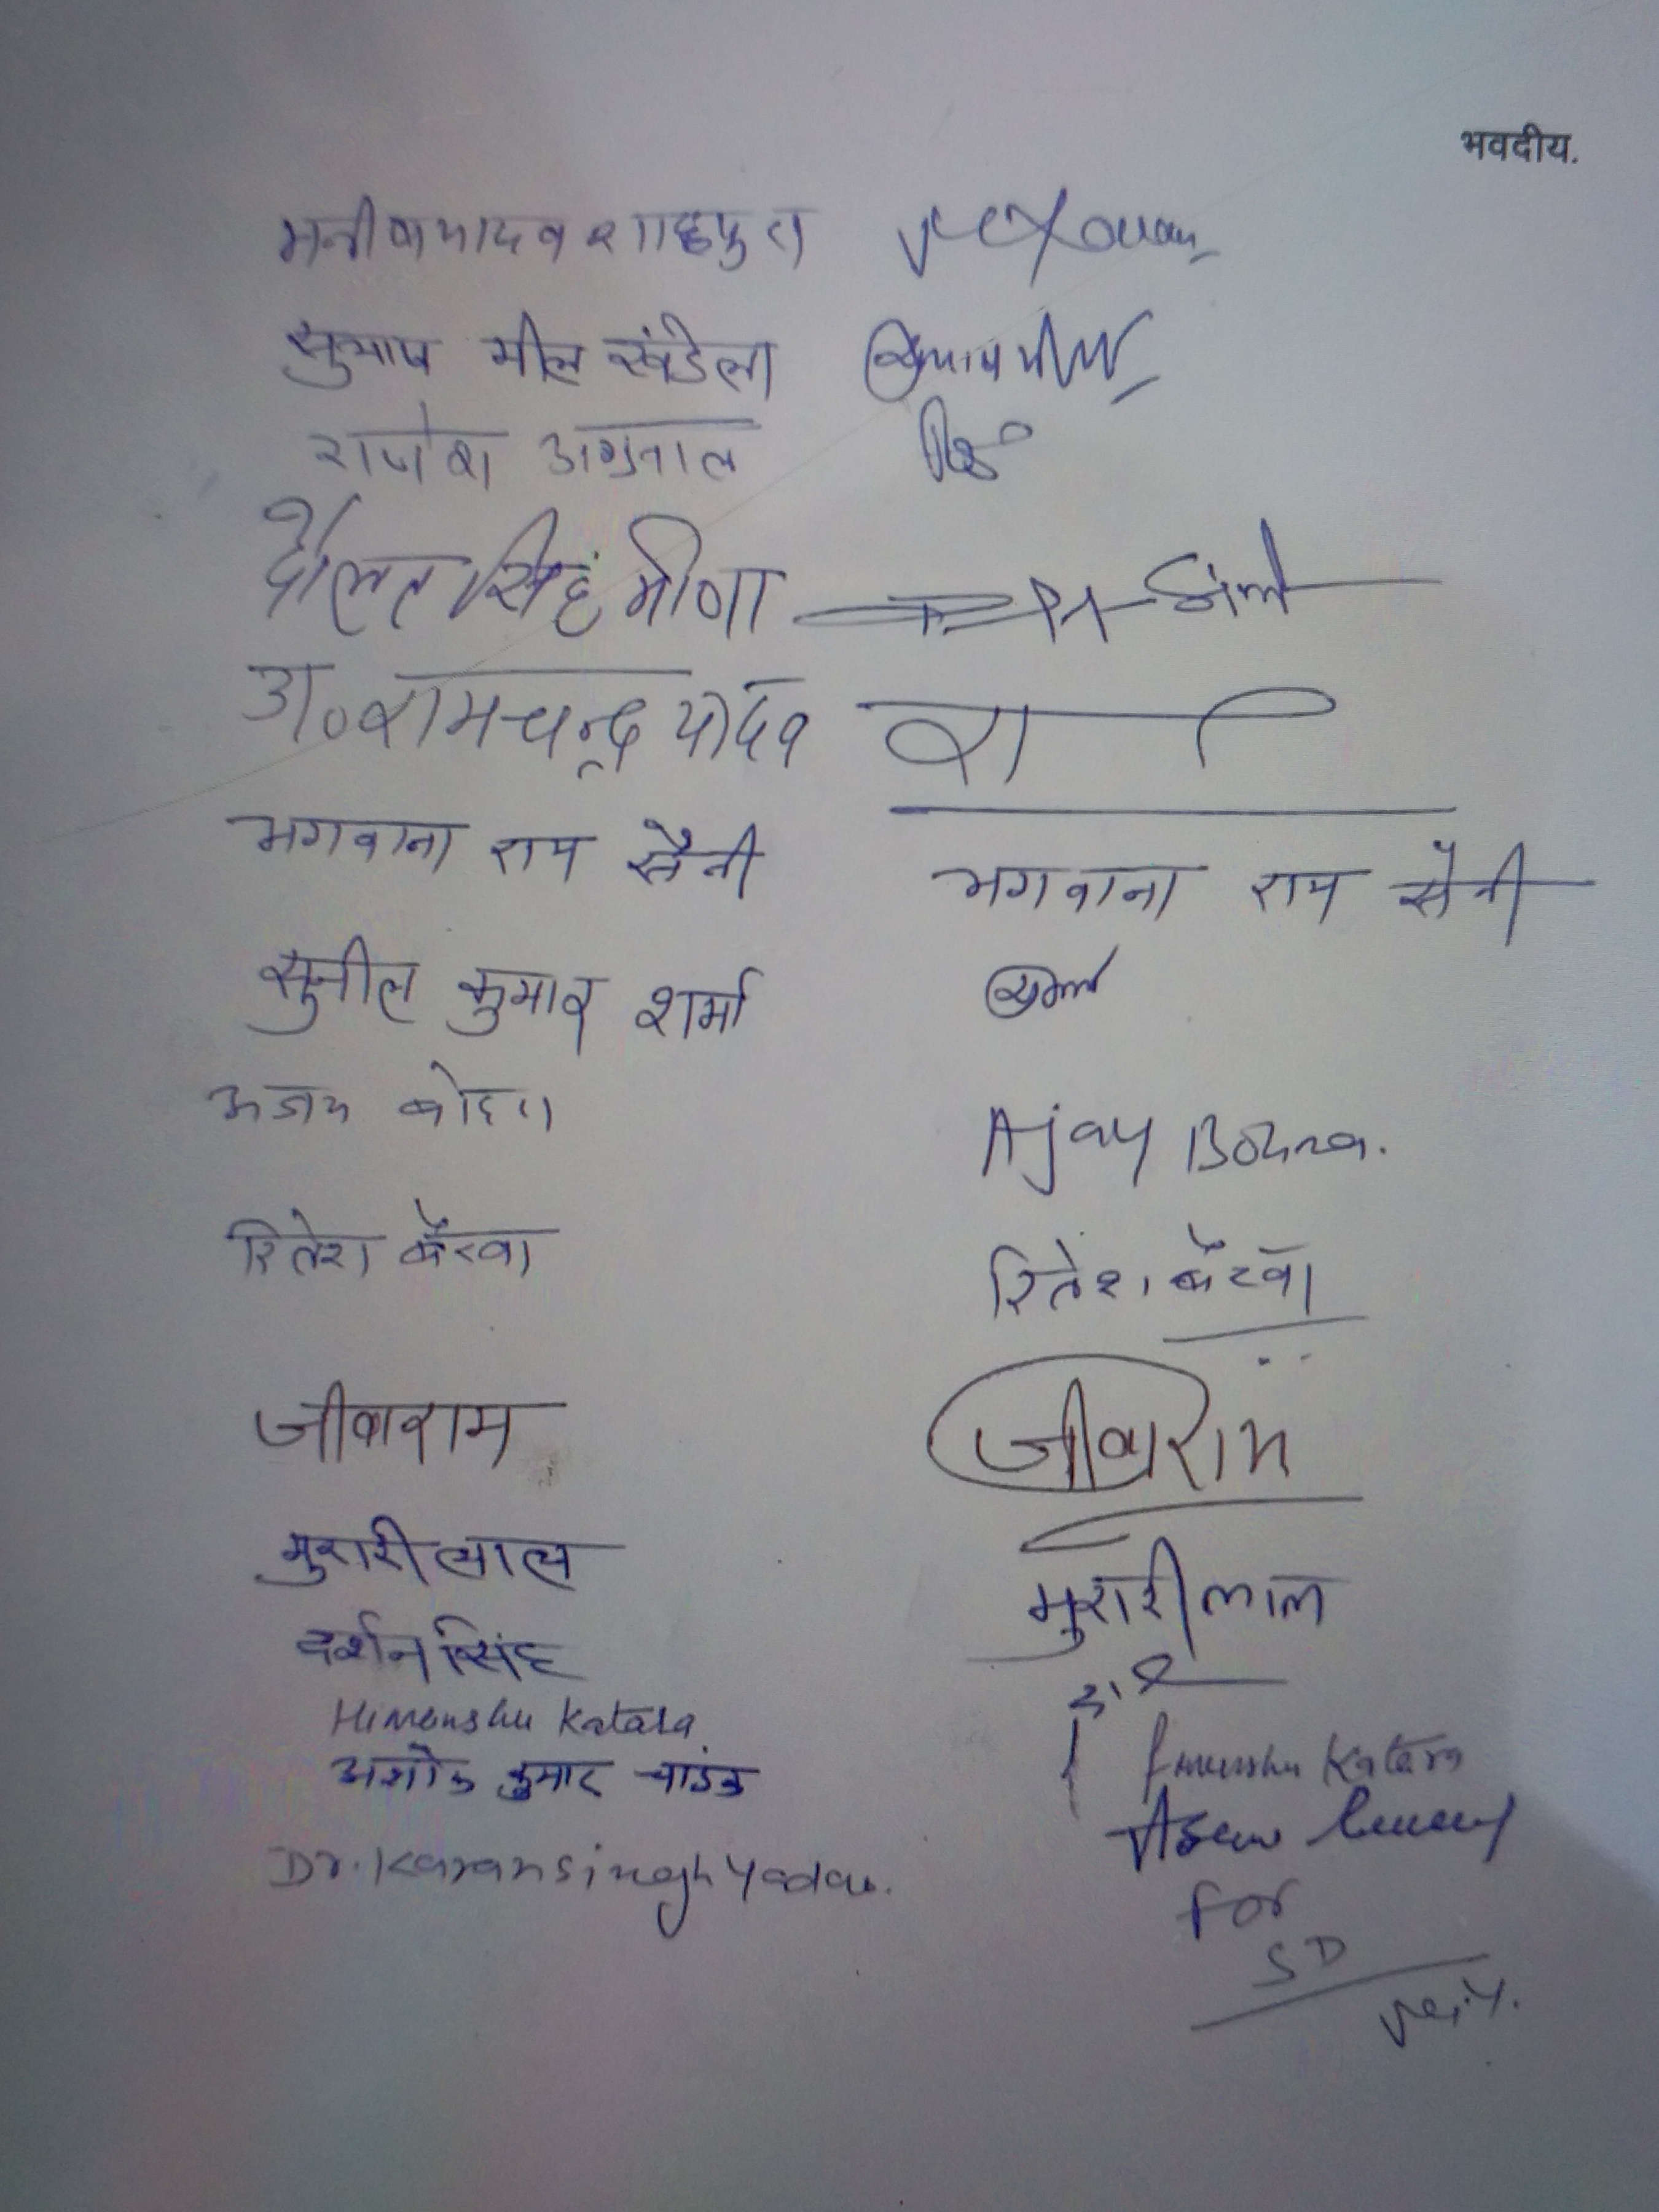 भवदीय.
मनीष यादव शाहपुरा
सुभाष मील खंडेला सुभाष मील
राजेश अग्रवाल
दौलत सिंह मीणा
डा० रामचन्द्र यादव रा
भगवाना राम सैनी भगवाना राम सैनी
सुनील कुमार शर्मा
अजय बोहरा Ajay Bohra.
रितेश बैरवा रितेश बैरवा
जीवाराम जीवाराम
मुरारी लाल मुरारी लाल
दर्शन सिंह
Himanshu Katara Himanshu Katara
अशोक कुमार चांडक
Dr. Karan Singh Yadav.
For
SD